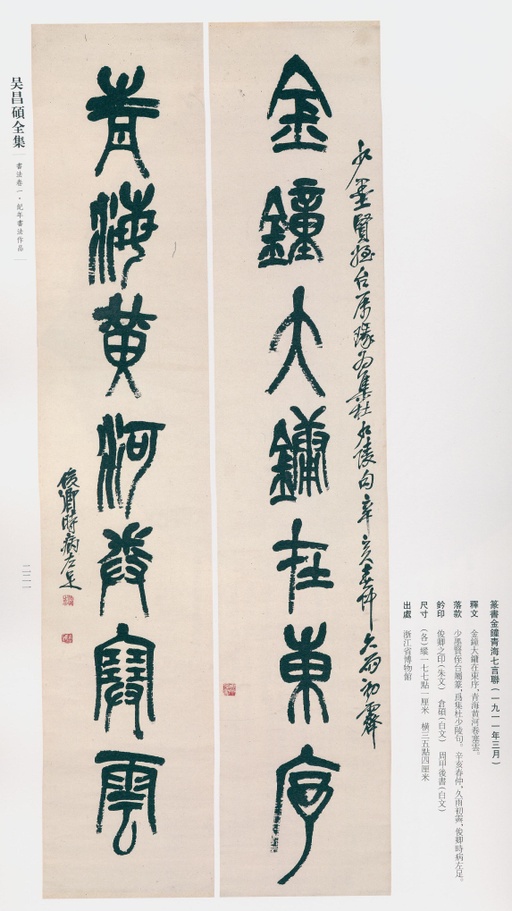 篆書金鐘青海七言聯(一九一一年三月)
釋文 金鐘大鏞在東序,青海黄河卷塞雲。
落款 少墨賢侄台屬篆,爲集杜少陵句。辛亥春仲,久雨初霽,俊卿時病左足。
鈐印 俊卿之印(朱文) 倉碩(白文) 周甲後書(白文)
尺寸 (各)縱一七七點一厘米 橫三五點四厘米
出處 浙江省博物館
少墨賢姪台屬瑑為集杜少陵句辛亥春仲久雨初霽
金鐘大鏞在東序
青海黄河卷塞雲
俊卿時病左足
吴昌碩全集
書法卷一·紀年書法作品